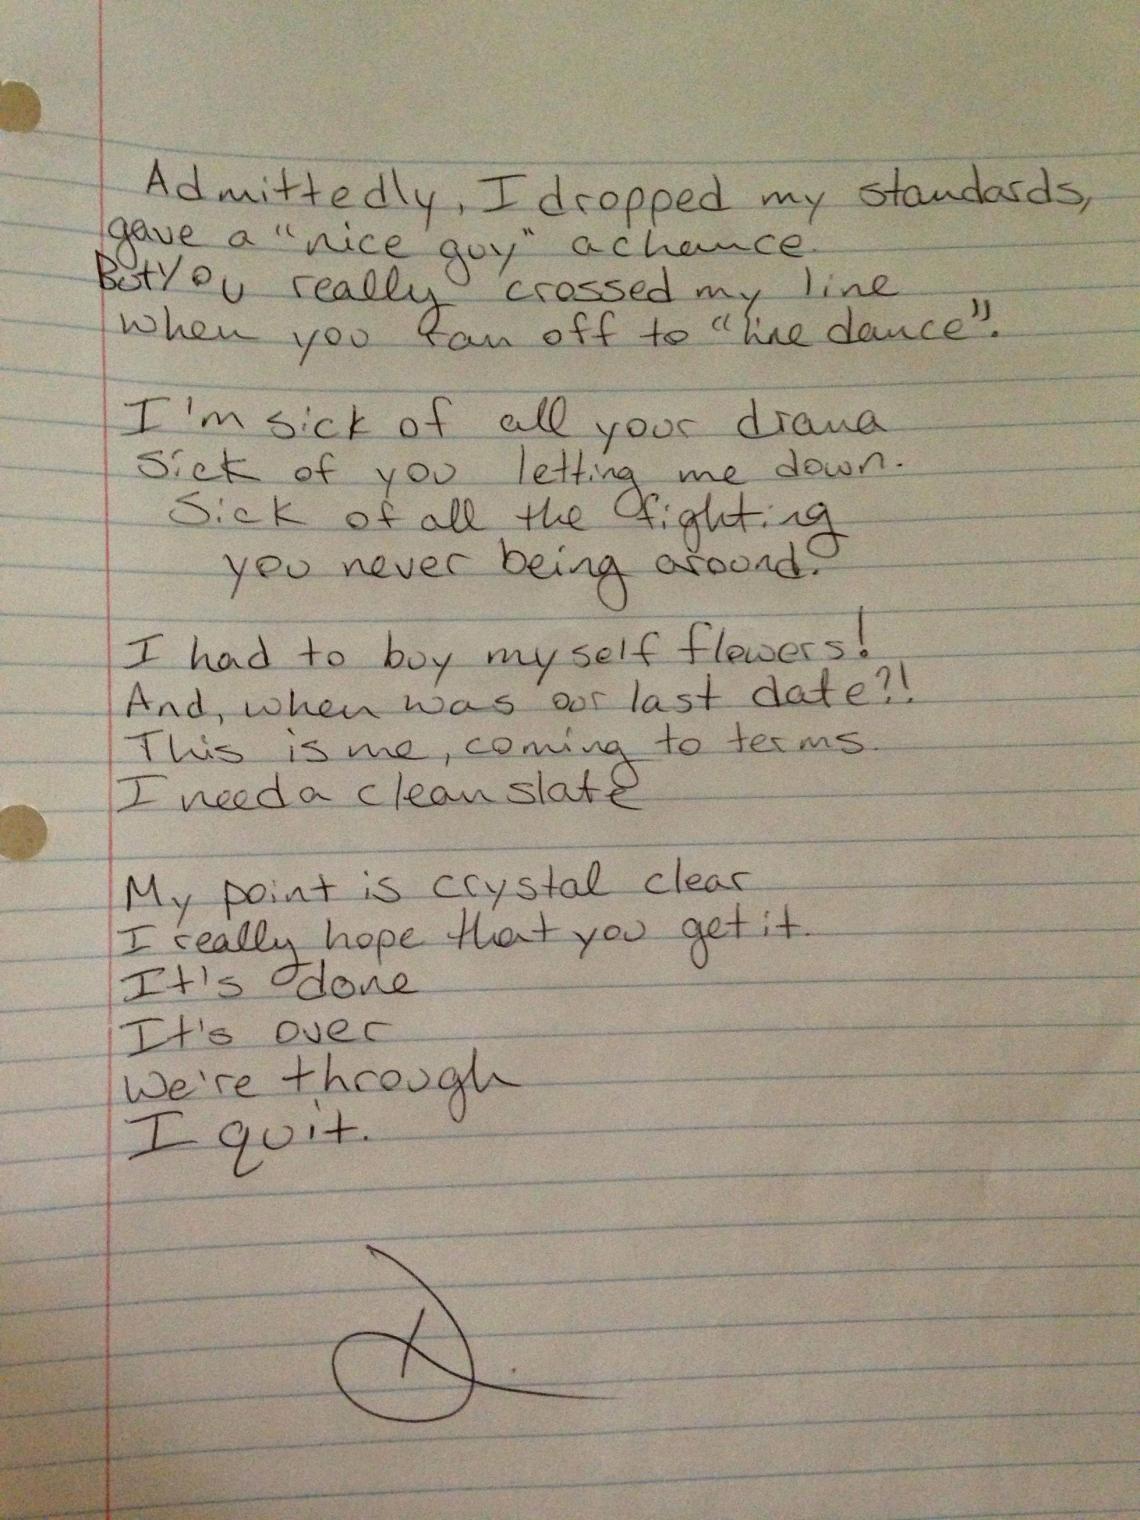 Admittedly, I dropped my standards,
gave a "nice guy" a chance.
But you really crossed my line
when you ran off to "line dance".
I'm sick of all your drama
Sick of you letting me down.
Sick of all the fighting
you never being around.
I had to buy myself flowers!
And, when was our last date?!
This is me, coming to terms.
I need a clean slate
My point is crystal clear
I really hope that you get it.
It's done
It's over
We're through
I quit.